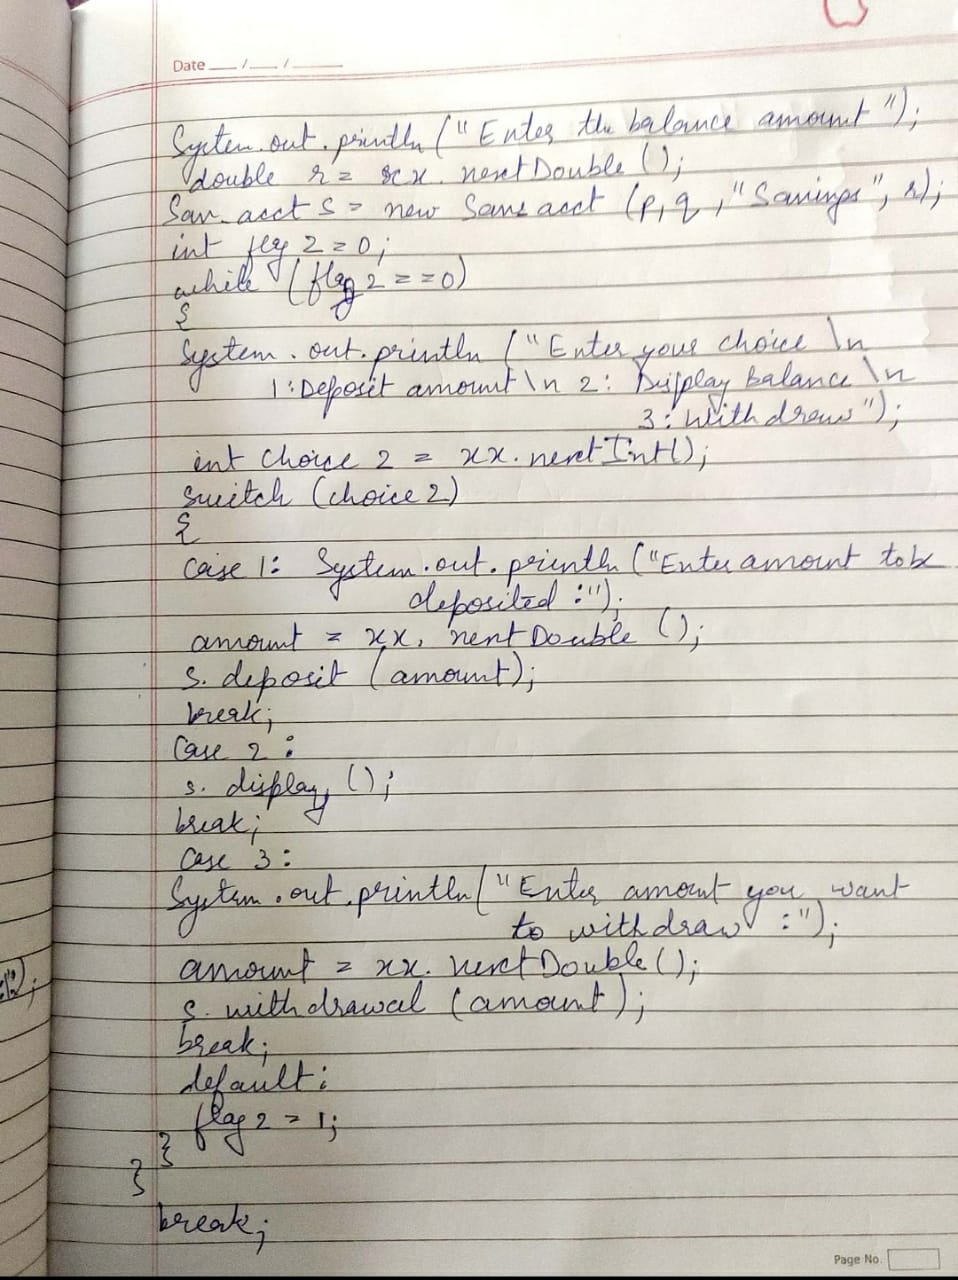 Date __/__/____
System.out.println("Enter the balance amount");
double r = xx.nextDouble();
Sav_acct s = new Sav_acct (p, q, "Savings", r);
int flag 2 = 0;
while (flag 2 == 0)
{
System.out.println ("Enter your choice \n
1:Deposit amount \n 2: Display balance \n
3: With draw");
int choice 2 = xx.nextInt();
switch (choice 2)
{
case 1: System.out.println ("Enter amount to be
deposited :");
amount = xx.nextDouble ();
s. deposit (amount);
break;
case 2 :
s. display ();
break;
case 3 :
System.out.println("Enter amount you want
to withdraw :");
amount = xx.nextDouble();
s. withdrawal (amount);
break;
default:
flag 2 = 1;
}
}
break;
Page No.